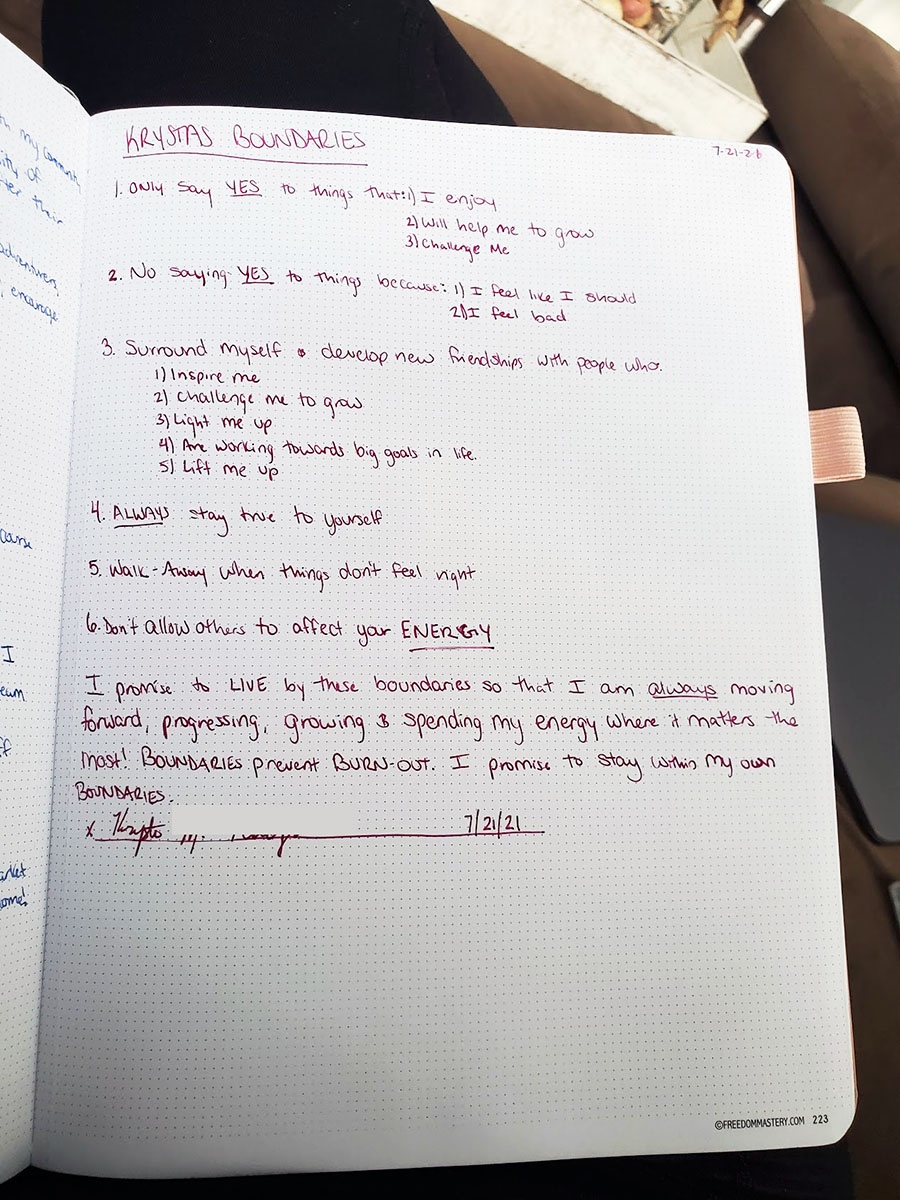 KRYSTAS BOUNDARIES
7-21-21
1. ONLY Say YES to things that: 1) I enjoy
2) Will help me to grow
3) Challenge Me
2. No saying YES to things because: 1) I feel like I should
2) I feel bad
3. Surround myself & develop new friendships with people who.
1) Inspire me
2) Challenge me to grow
3) Light me up
4) Are working towards big goals in life.
5) Lift me up
4. ALWAYS stay true to yourself
5. Walk-Away when things don't feel right
6. Don't allow others to affect your ENERGY
I promise to LIVE by these boundaries so that I am always moving
forward, progressing, growing & spending my energy where it matters the
most! BOUNDARIES prevent BURN-OUT. I promise to stay within my own
BOUNDARIES.
x 7/21/21
©FREEDOMMASTERY.COM 223
my Community
ity of
their
adventures
, encourage
I
eam
ff
arket
ome!